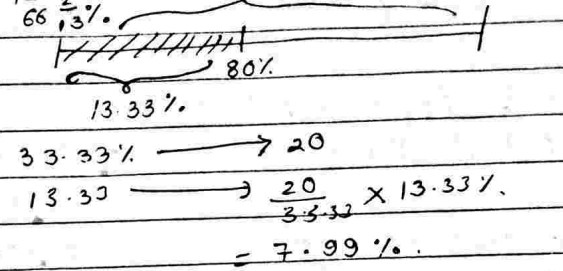 66 2/3 %.
80%
13.33 %.
33.33% → 20
13.33 → 20/33.33 × 13.33 %.
= 7.99 %.